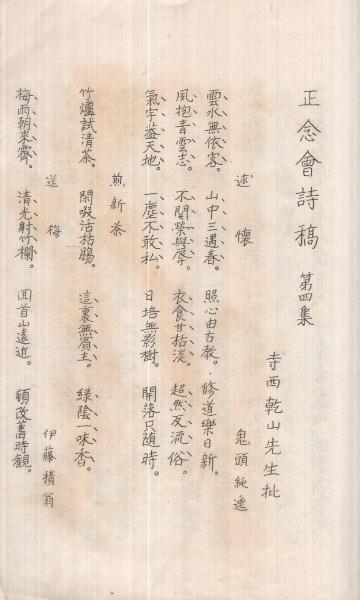 正念會詩稿 第四集
寺西乾山先生批
述懷 鬼頭純逸
雲水無依客。山中三遇春。照心由古教。修道樂日新。
夙抱青雲志。不関榮與辱。衣食甘枯淡。超然反流俗。
氣宇蓋天地。一塵不敢私。日培無影樹。開落只随時。
煎新茶
竹爐試清茶。閑啜沽枯腸。這裏無賓主。緑陰一味香。
送梅 伊藤積翁
梅雨朝来霽。清光射竹欄。回首山遠近。頓改舊時観。